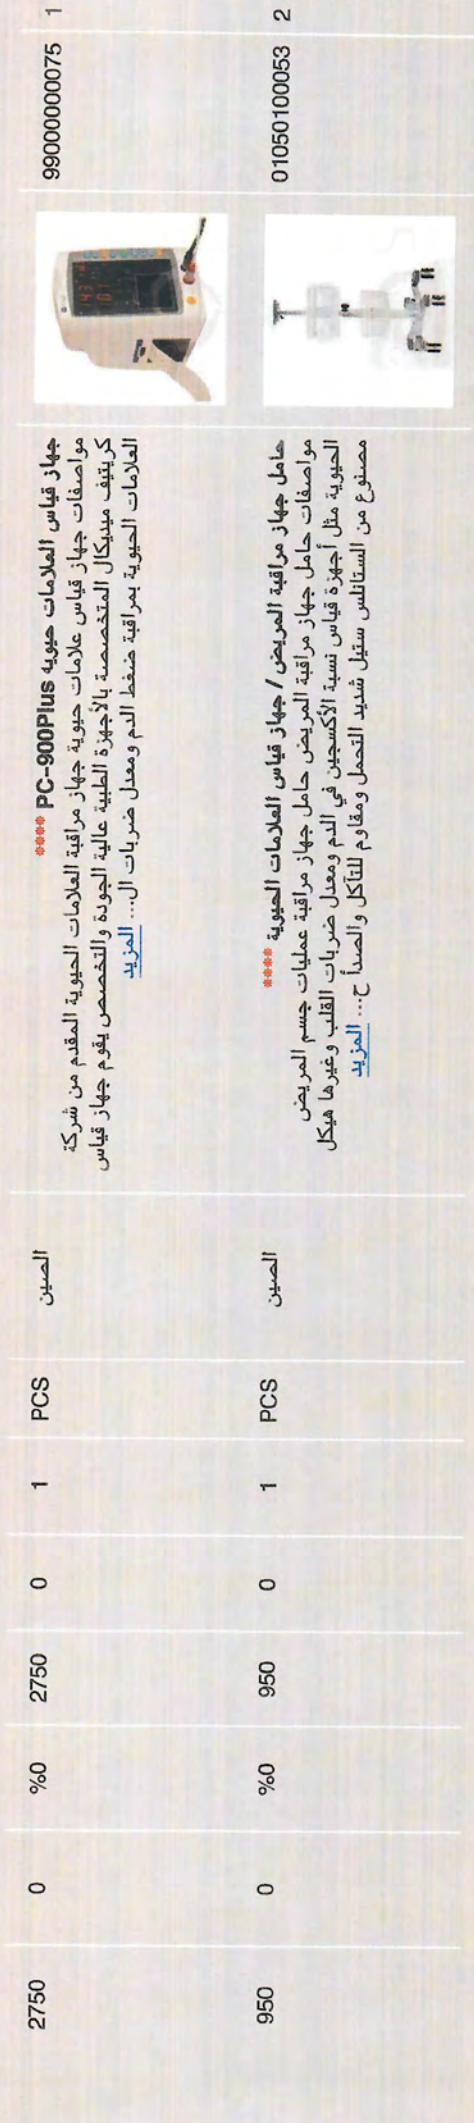 1
99000000075
جهاز قياس العلامات حيويه PC-900Plus ****
مواصفات جهاز قياس علامات حيوية جهاز مراقبة العلامات الحيوية المقدم من شركة
كريتيف ميديكال المتخصصة بالأجهزة الطبية عالية الجودة والتخصص يقوم جهاز قياس
العلامات الحيوية بمراقبة ضغط الدم ومعدل ضربات ال... المزيد
الصين
PCS
1
0
2750
%0
0
2750
2
01050100053
حامل جهاز مراقبة المريض / جهاز قياس العلامات الحيوية ****
مواصفات حامل جهاز مراقبة المريض حامل جهاز مراقبة عمليات جسم المريض
الحيوية مثل أجهزة قياس نسبة الأكسجين في الدم ومعدل ضربات القلب وغيرها هيكل
مصنوع من الستانلس ستيل شديد التحمل ومقاوم للتآكل والصدأ ح... المزيد
الصين
PCS
1
0
950
%0
0
950